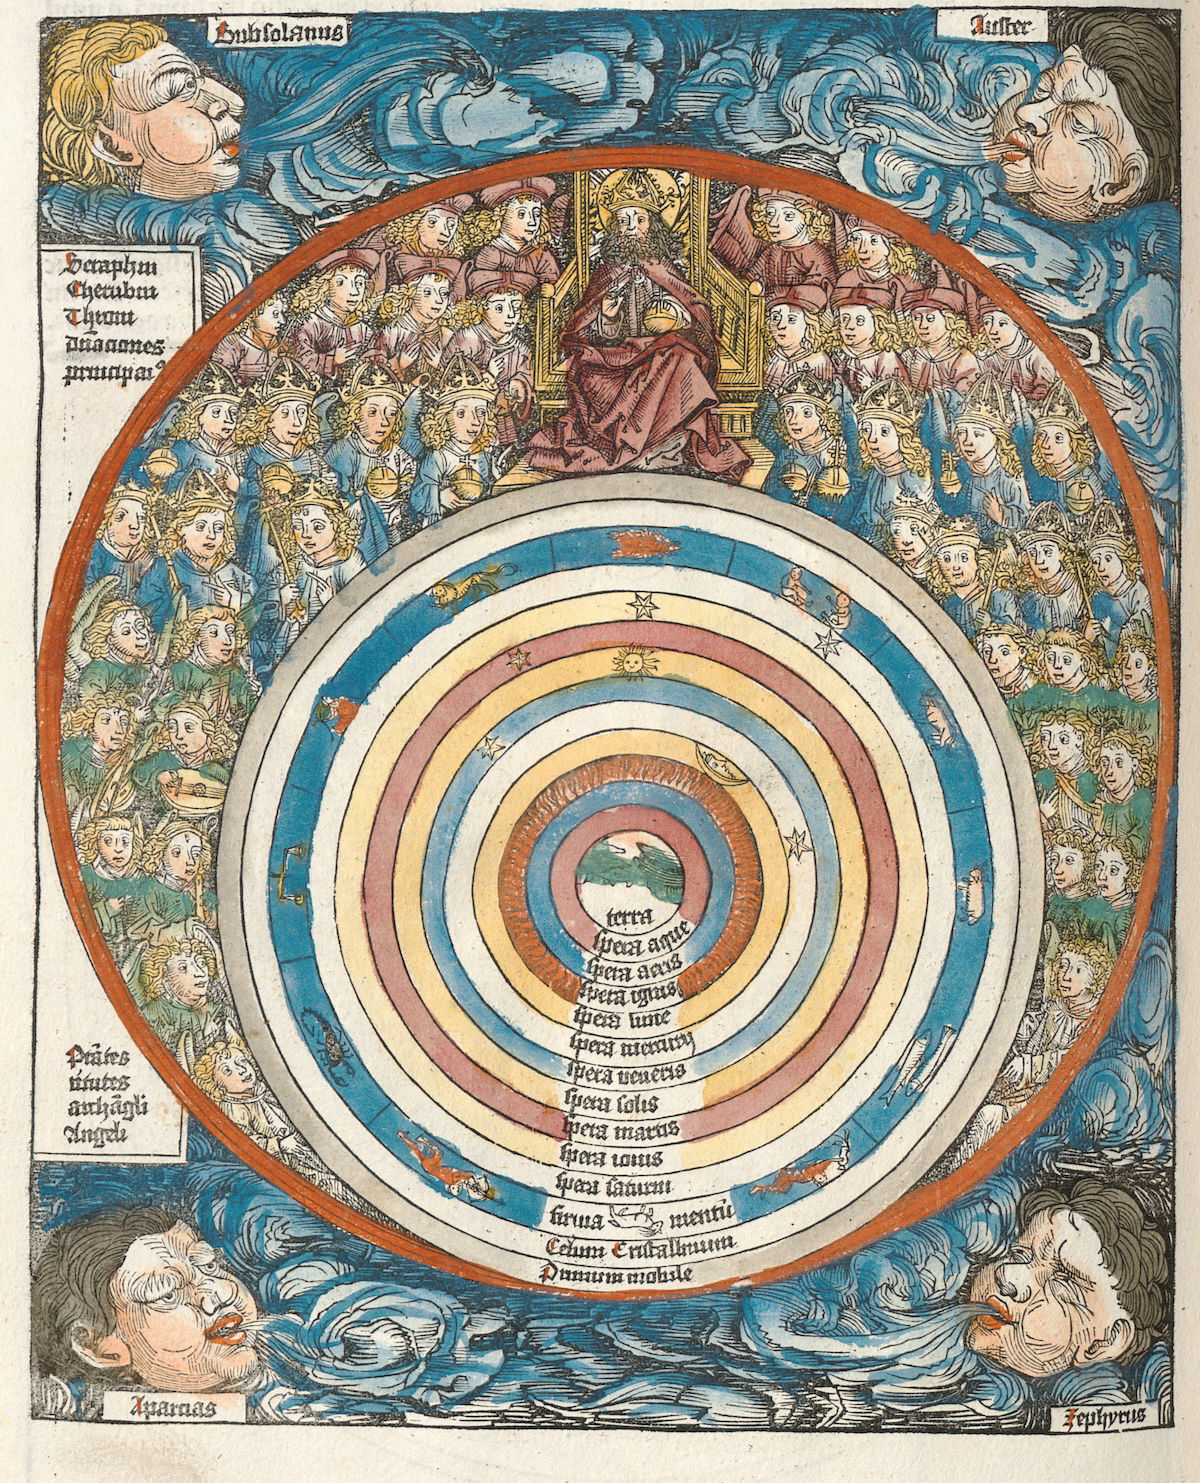 Subsolanus
Auster
Seraphin
Cherubin
Throni
dn̄aciones
principat⁹
terra
spera aque
spera aeris
spera ignis
spera lune
spera mercurij
spera veneris
spera solis
spera martis
spera iouis
spera saturni
firma mentū
Celum Cristallinum
Primum mobile
Ptātes
v̄tutes
archāgli
Angeli
Aparcias
Zephyrus